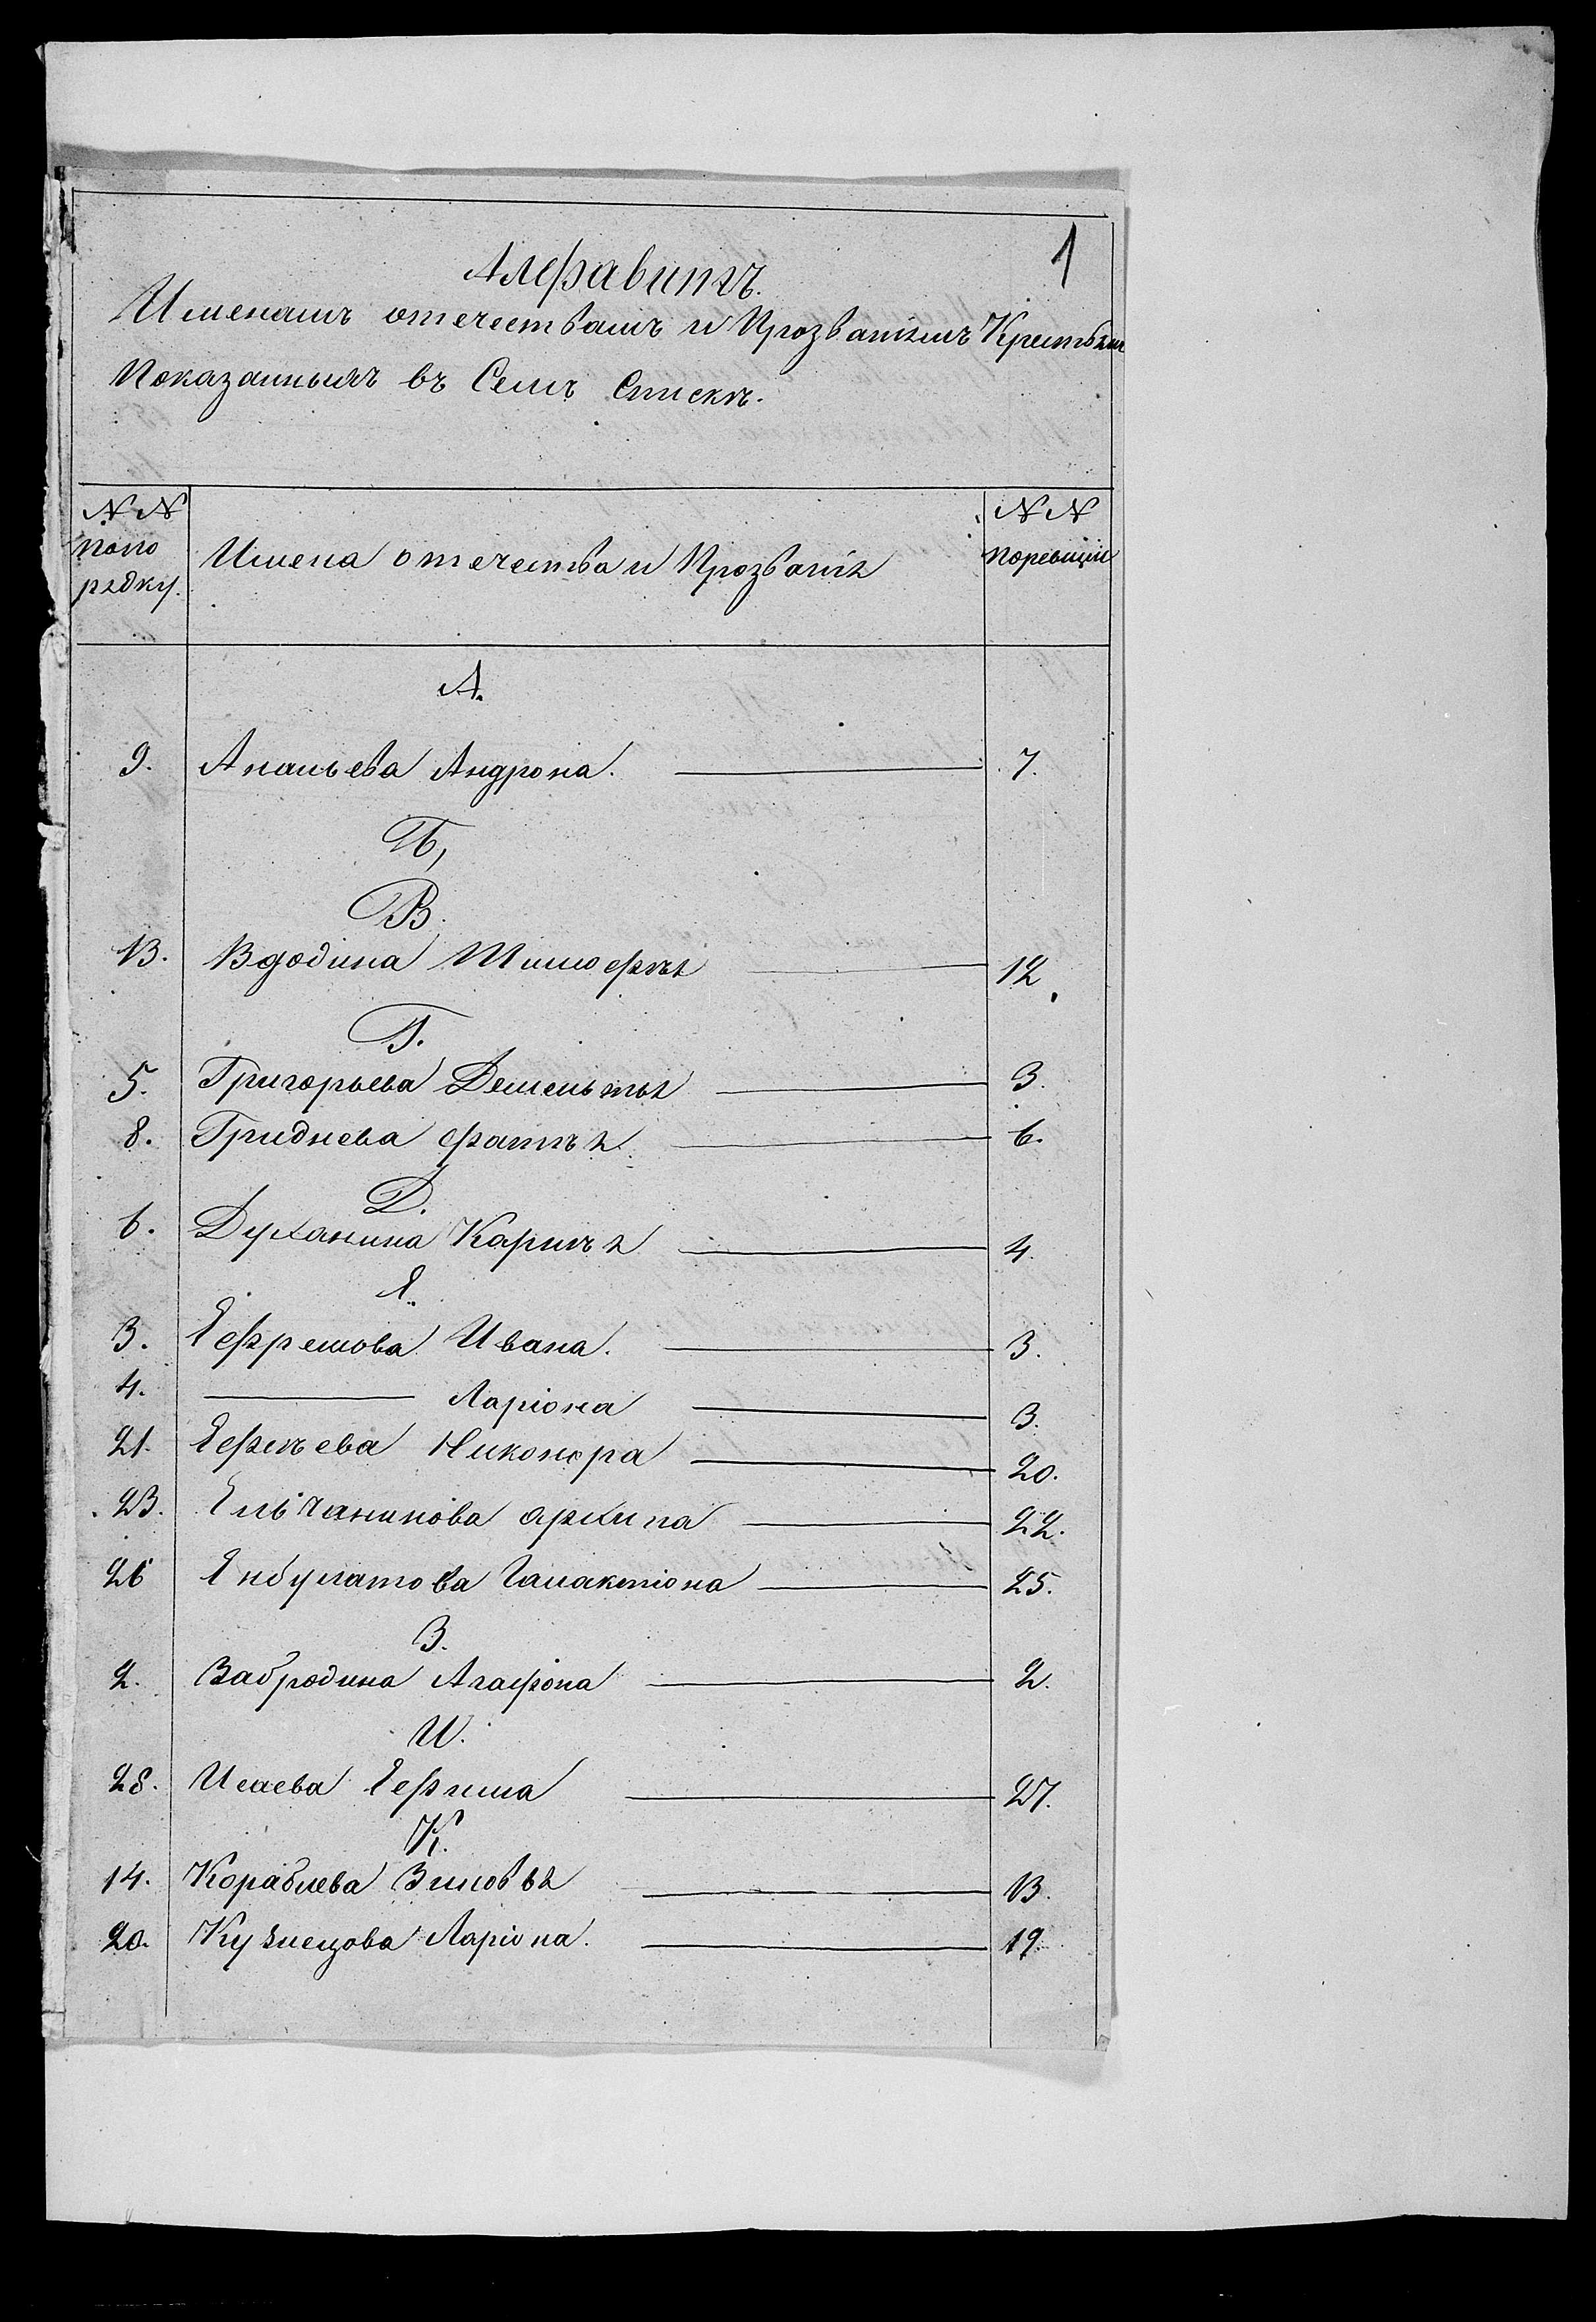 1
Алефавитъ.
Именамъ отечествамъ и Прозваніямъ Крестьян
Показаннымъ въ Семъ Спискѣ.
№№ попо рядку.
Имена отечества и Прозванія
№№ поревизіи
А.
9. Ананьева Андрона. 7.
Б,
В.
13. Вдовина Тимофѣя 12
Г.
5. Григорьева Дементья 3.
8. Гриднева фатѣя 6.
Д.
6. Духанина Карпѣя 4.
Е.
3. Ефремова Ивана. 3.
4. Ларіона 3.
21. Ефѣева Никонора 20.
23. Ельчанинова архипа 22.
26 Енбулатова Галактіона 25.
З.
2. Забродина Агафона 2.
И.
28. Исаева Ефима 27.
К.
14. Кораблева Зиновья 13.
20. Кузнецова Ларіона. 19